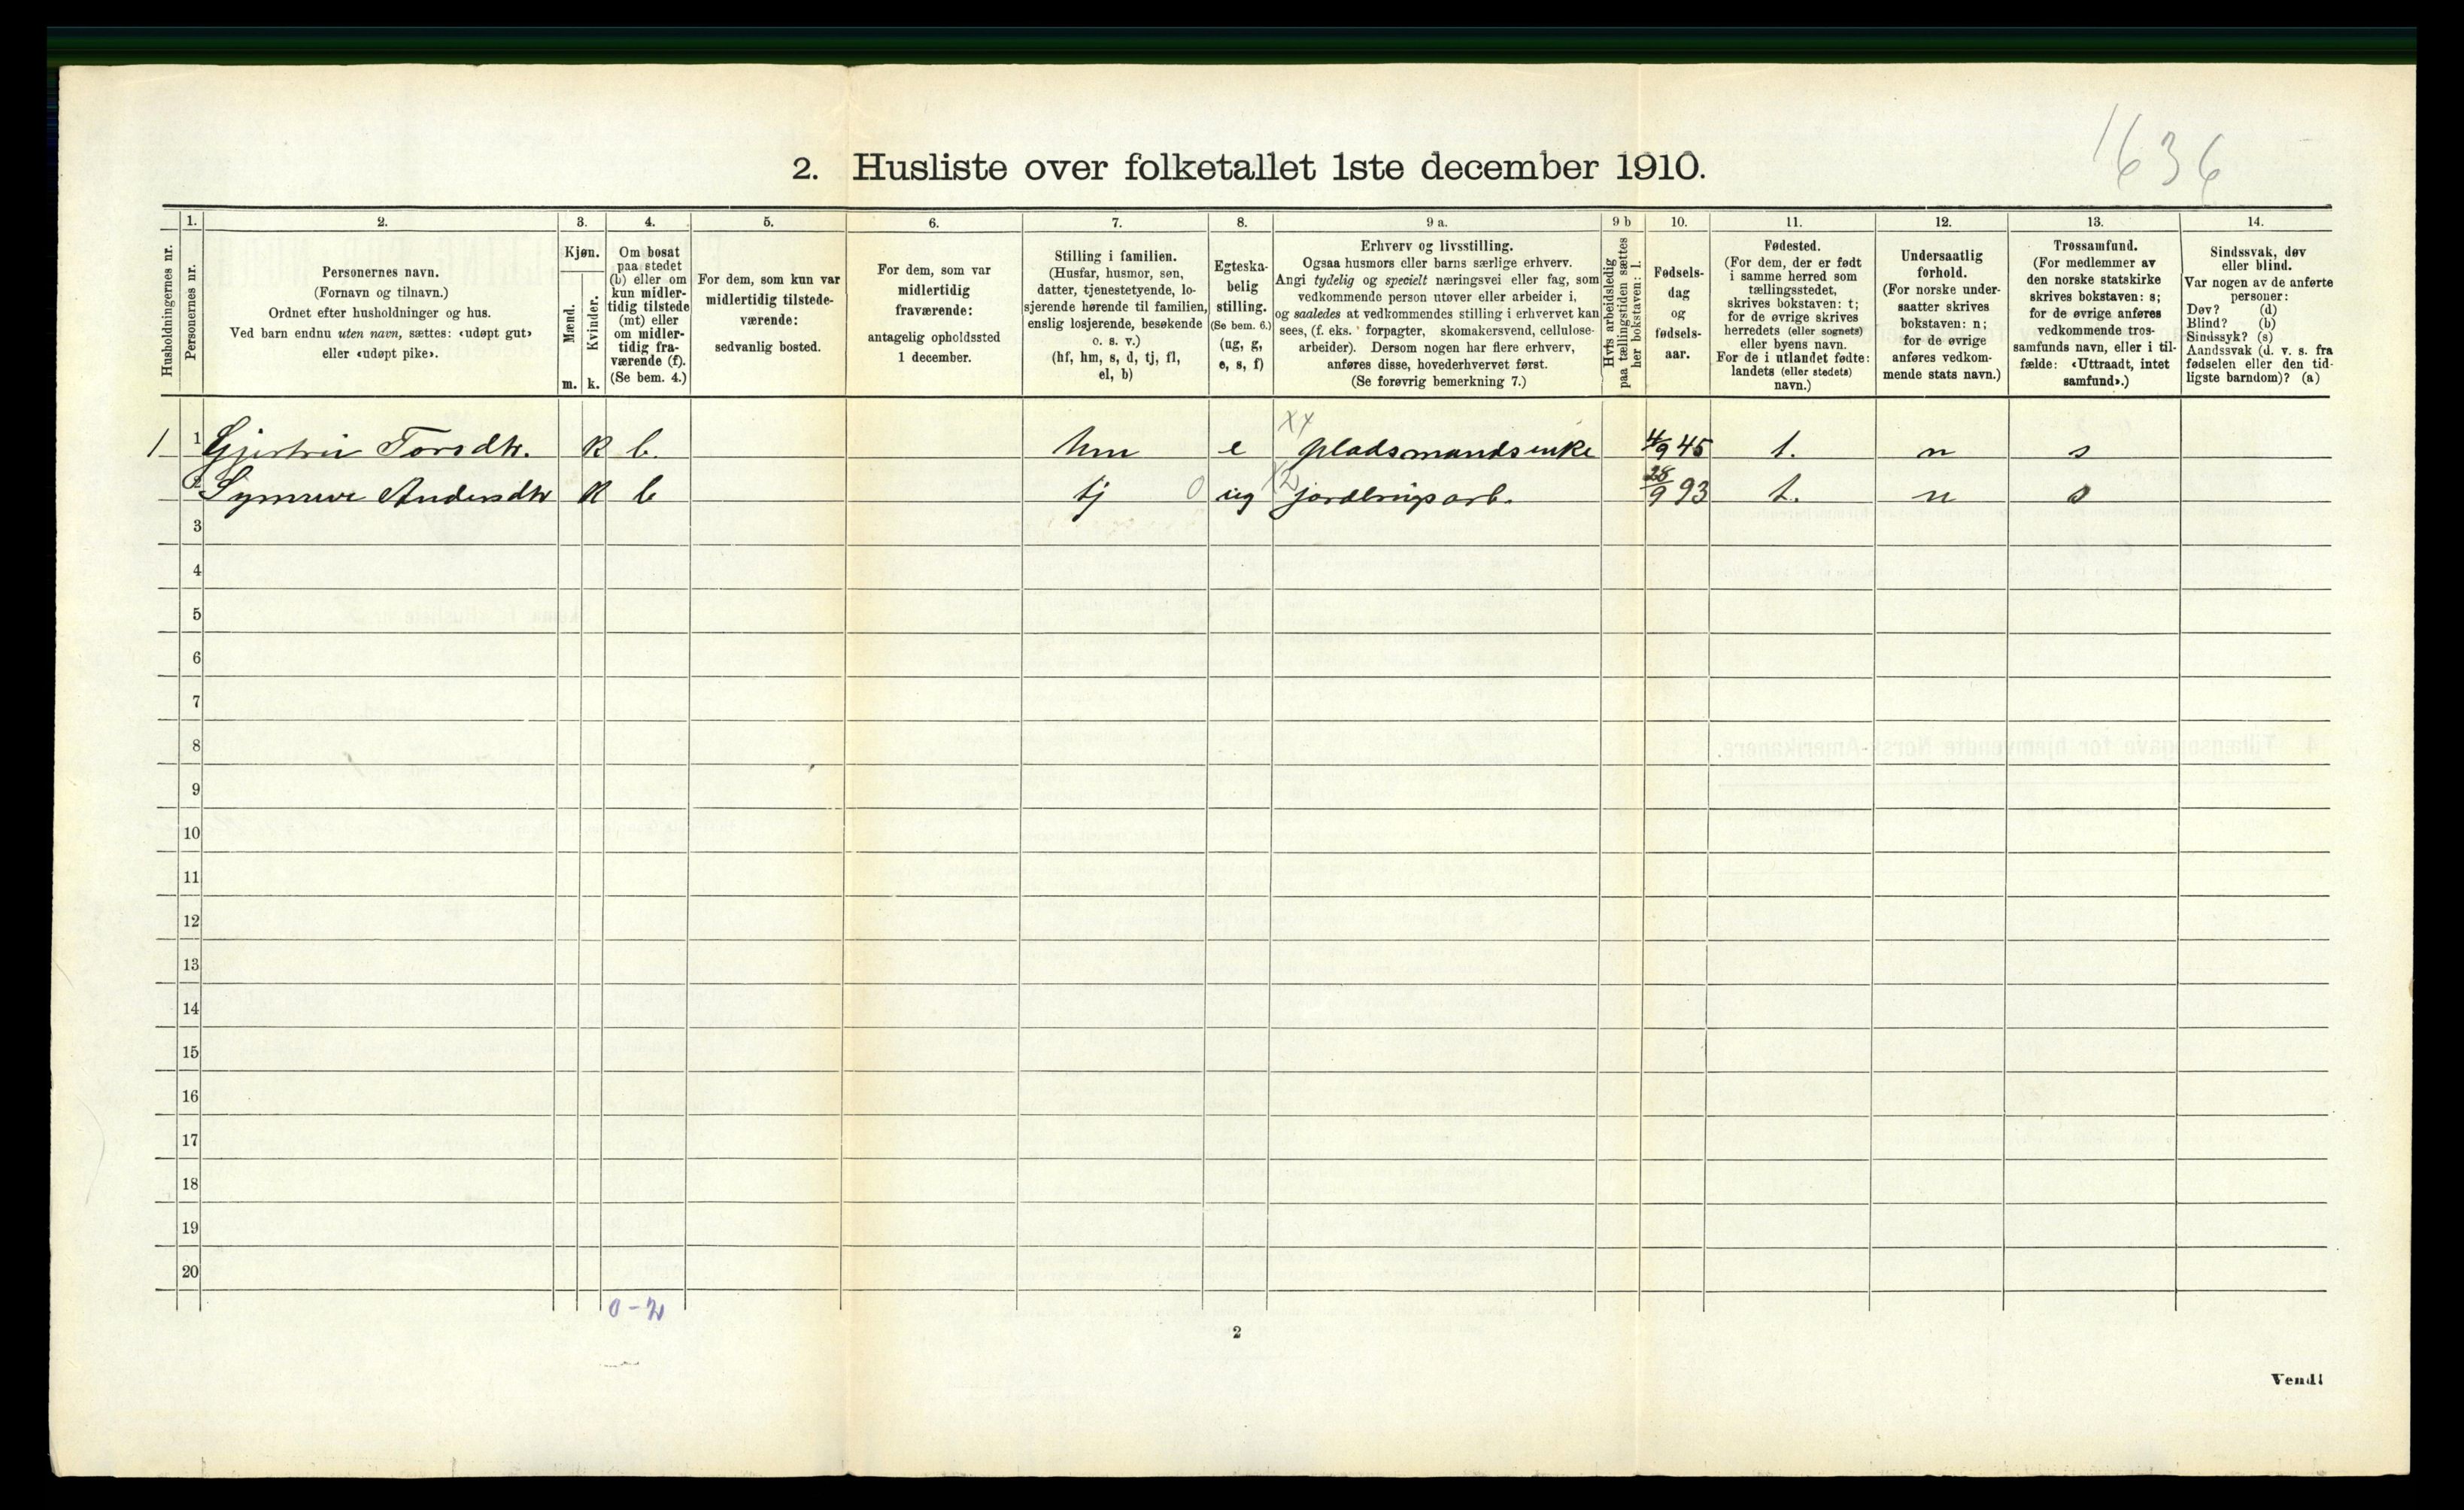 1636
2. Husliste over folketallet 1ste december 1910.
1. 2. 3. 4. 5. 6. 7. 8. 9 a. 9 b 10. 11. 12. 13. 14.
Husholdningernes nr.
Personernes nr.
Personernes navn.
(Fornavn og tilnavn.)
Ordnet efter husholdninger og hus.
Ved barn endnu uten navn, sættes: «udøpt gut»
eller «udøpt pike».
Kjøn.
Mænd.
Kvinder.
m. k.
Om bosat
paa stedet
(b) eller om
kun midler-
tidig tilstede
(mt) eller
om midler-
tidig fra-
værende (f).
(Se bem. 4.)
For dem, som kun var
midlertidig tilstede-
værende:
sedvanlig bosted.
For dem, som var
midlertidig
fraværende:
antagelig opholdssted
1 december.
Stilling i familien.
(Husfar, husmor, søn,
datter, tjenestetyende, lo-
sjerende hørende til familien,
enslig losjerende, besøkende
o. s. v.)
(hf, hm, s, d, tj, fl,
el, b)
Egteska-
belig
stilling.
(Se bem. 6.)
(ug, g,
e, s, f)
Erhverv og livsstilling.
Ogsaa husmors eller barns særlige erhverv.
Angi tydelig og specielt næringsvei eller fag, som
vedkommende person utøver eller arbeider i,
og saaledes at vedkommendes stilling i erhvervet kan
sees, (f. eks. forpagter, skomakersvend, cellulose-
arbeider). Dersom nogen har flere erhverv,
anføres disse, hovederhvervet først.
(Se forøvrig bemerkning 7.)
Hvis arbeidsledig
paa tællingstiden sættes
her bokstaven: l.
Fødsels-
dag
og
fødsels-
aar.
Fødested.
(For dem, der er født
i samme herred som
tællingsstedet,
skrives bokstaven: t;
for de øvrige skrives
herredets (eller sognets)
eller byens navn.
For de i utlandet fødte:
landets (eller stedets)
navn.)
Undersaatlig
forhold.
(For norske under-
saatter skrives
bokstaven: n;
for de øvrige
anføres vedkom-
mende stats navn.)
Trossamfund.
(For medlemmer av
den norske statskirke
skrives bokstaven: s;
for de øvrige anføres
vedkommende tros-
samfunds navn, eller i til-
fælde: «Uttraadt, intet
samfund».)
Sindssvak, døv
eller blind.
Var nogen av de anførte
personer:
Døv? (d)
Blind? (b)
Sindssyk? (s)
Aandssvak (d. v. s. fra
fødselen eller den tid-
ligste barndom)? (a)
x4
1 1 Gjertrui Torsdtr. k b. hm e pladsmandsenke 4/9 45 t. n s
2 Synneve Andersdtr k b tj 0 ug x2 jordbrugsarb. 28/9 93 t. n s
3
4
5
6
7
8
9
10
11
12
13
14
15
16
17
18
19
20
0-2
2
Vend!